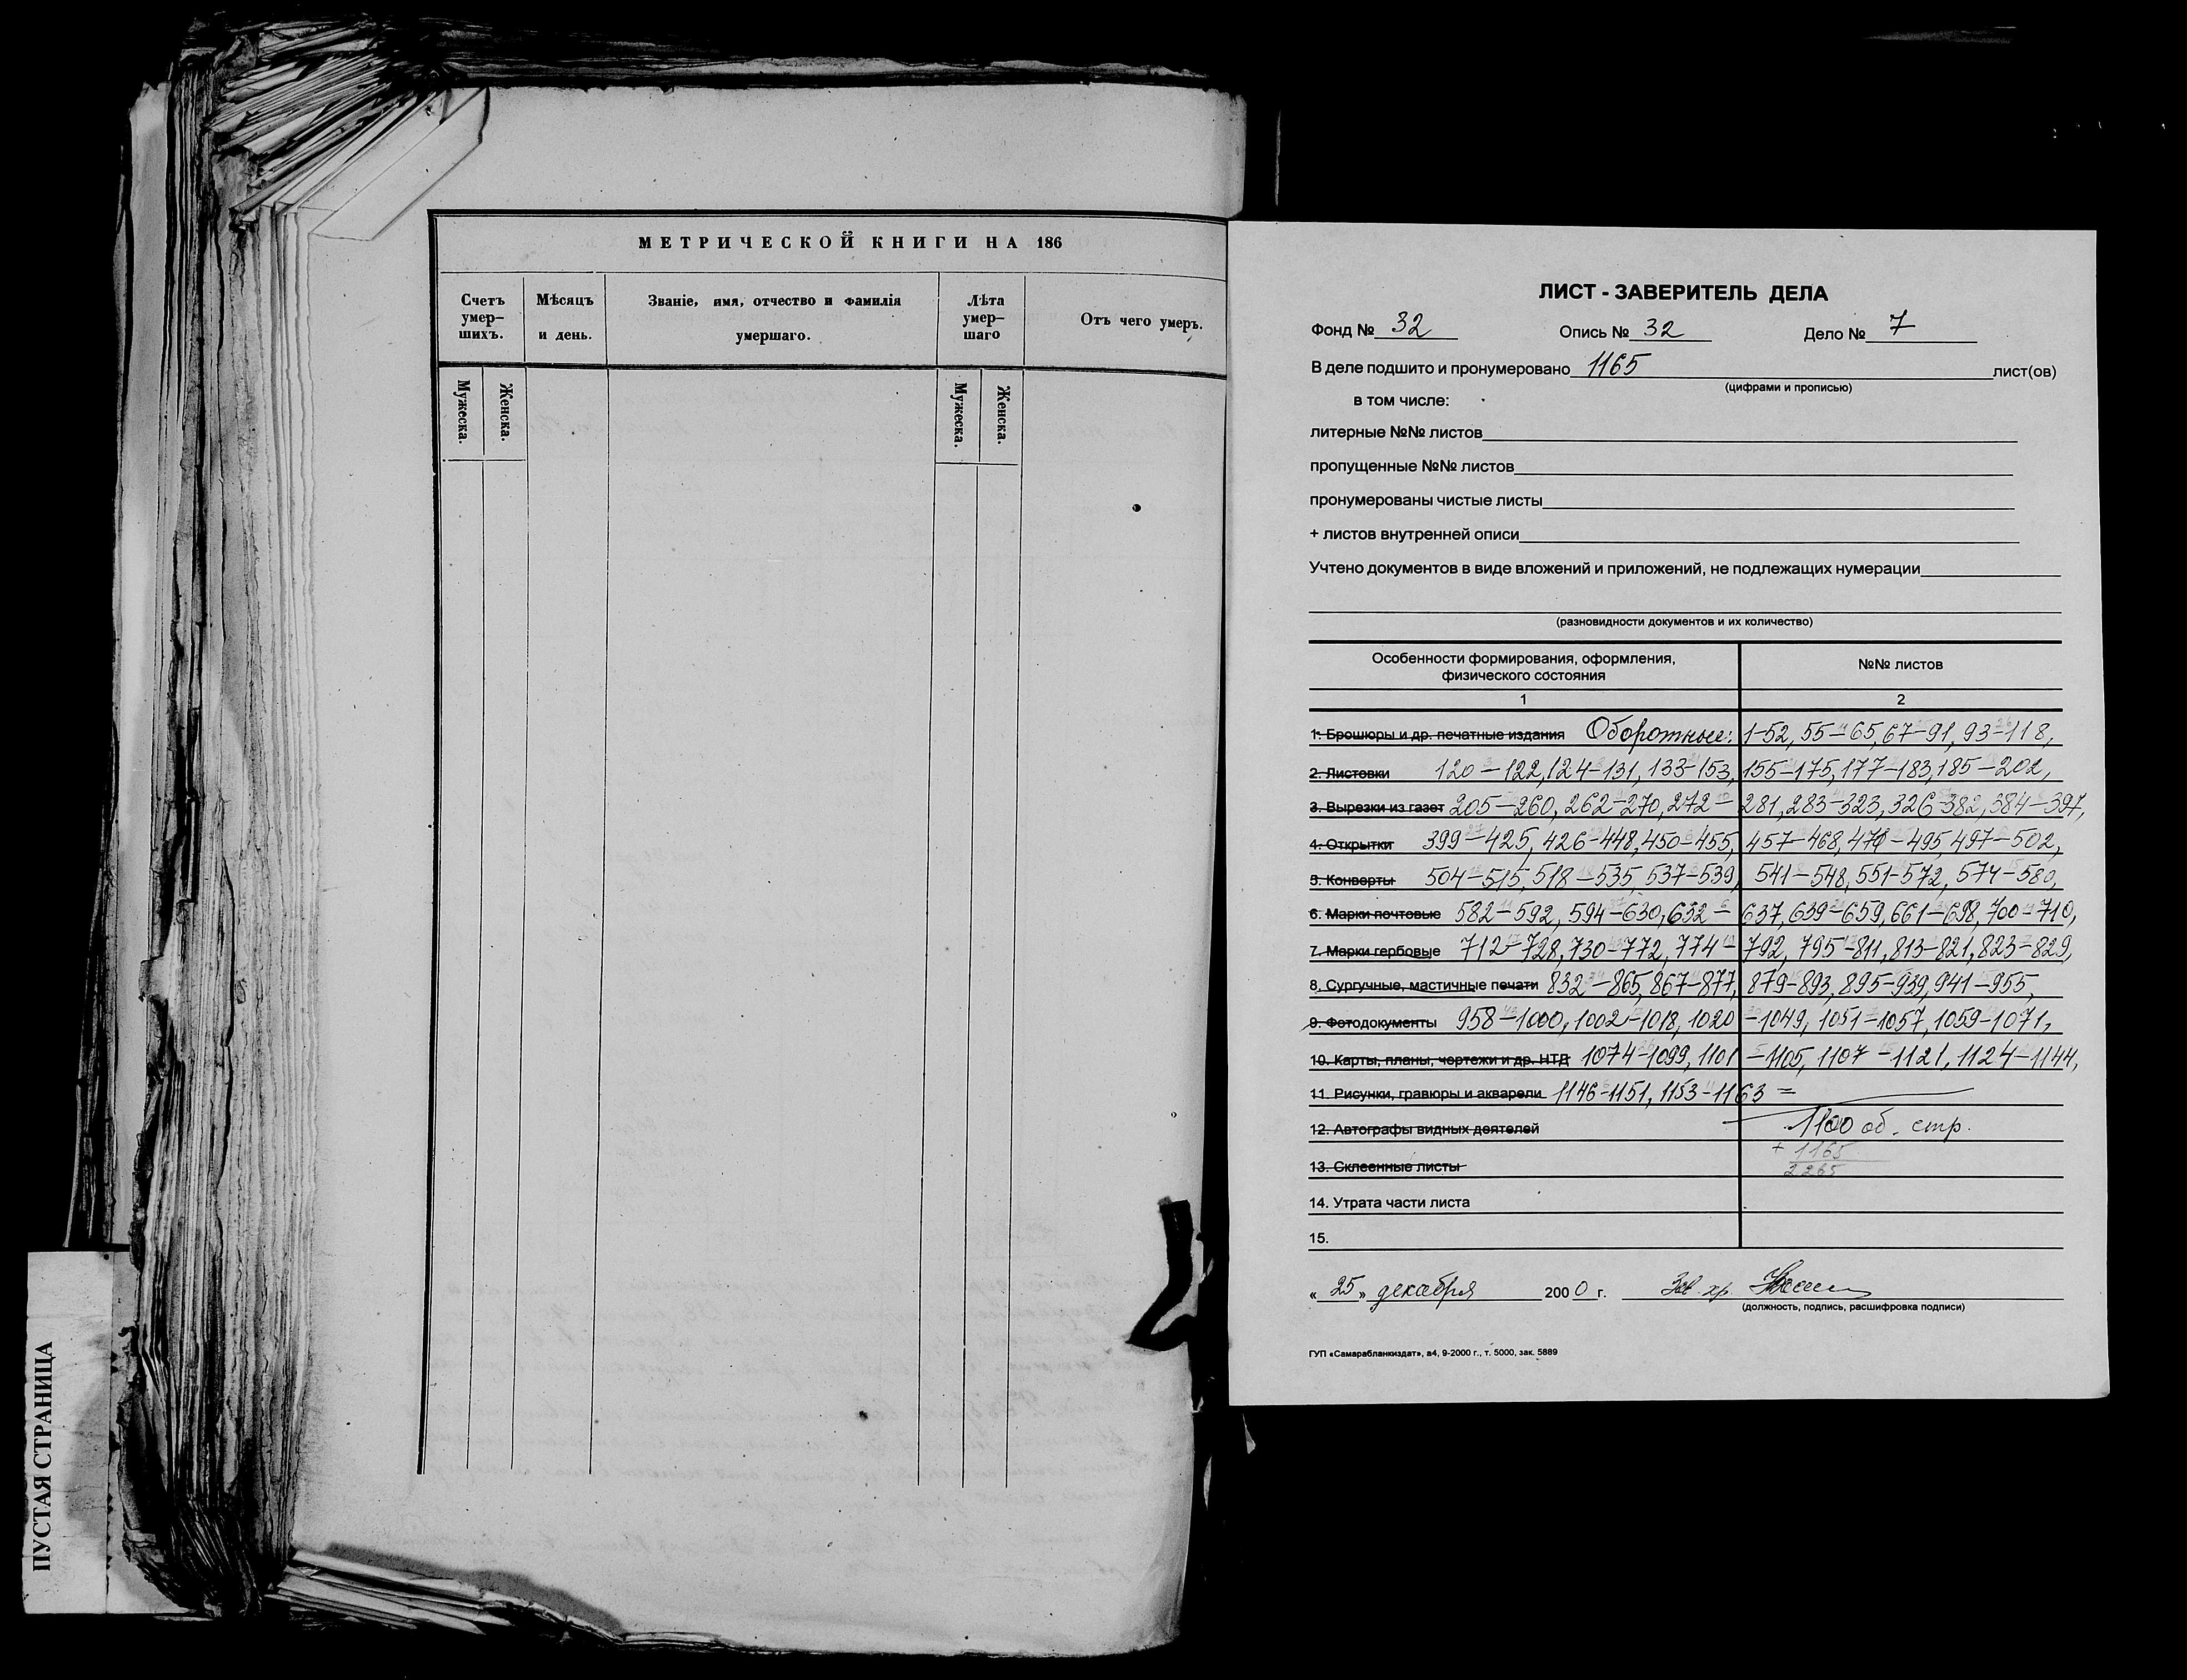 МЕТРИЧЕСКОЙ КНИГИ НА 186
Счетъ умер–шихъ.
Мѣсяцъ и день.
Званіе, имя, отчество и фамилія умершаго.
Лѣта умер–шаго
Отъ чего умеръ.
Мужеска.
Женска.
Мужеска.
Женска.
ПУСТАЯ СТРАНИЦА
ЛИСТ - ЗАВЕРИТЕЛЬ ДЕЛА
Фонд № 32 Опись № 32 Дело № 7
В деле подшито и пронумеровано 1165 лист(ов)
(цифрами и прописью)
в том числе:
литерные №№ листов
пропущенные №№ листов
пронумерованы чистые листы
+ листов внутренней описи
Учтено документов в виде вложений и приложений, не подлежащих нумерации
(разновидности документов и их количество)
Особенности формирования, оформления, физического состояния
№№ листов
1 2
1. Брошюры и др. печатные издания Оборотные: 1-52, 55-65, 67-91, 93-118,
2. Листовки 120-122, 124-131, 133-153, 155-175, 177-183, 185-202,
3. Вырезки из газет 205-260, 262-270, 272-281, 283-323, 326-382, 384-397,
4. Открытки 399-425, 426-448, 450-455, 457-468, 470-495, 497-502,
5. Конверты 504-515, 518-535, 537-539, 541-548, 551-572, 574-580,
6. Марки почтовые 582-592, 594-630, 632-637, 639-659, 661-698, 700-710,
7. Марки гербовые 712-728, 730-772, 774-792, 795-811, 813-821, 823-829,
8. Сургучные, мастичные печати 832-865, 867-877, 879-893, 895-939, 941-955,
9. Фотодокументы 958-1000, 1002-1018, 1020-1049, 1051-1057, 1059-1071,
10. Карты, планы, чертежи и др. НТД 1074-1099, 1101-1105, 1107-1121, 1124-1144,
11. Рисунки, гравюры и акварели 1146-1151, 1153-1163 =
12. Автографы видных деятелей 1100 об. стр.
+ 1165
13. Склеенные листы 2265
14. Утрата части листа
15.
« 25 » декабря 2000 г. Зав. хр.
(должность, подпись, расшифровка подписи)
ГУП «Самарабланкиздат», а4, 9-2000 г., т. 5000, зак. 5889